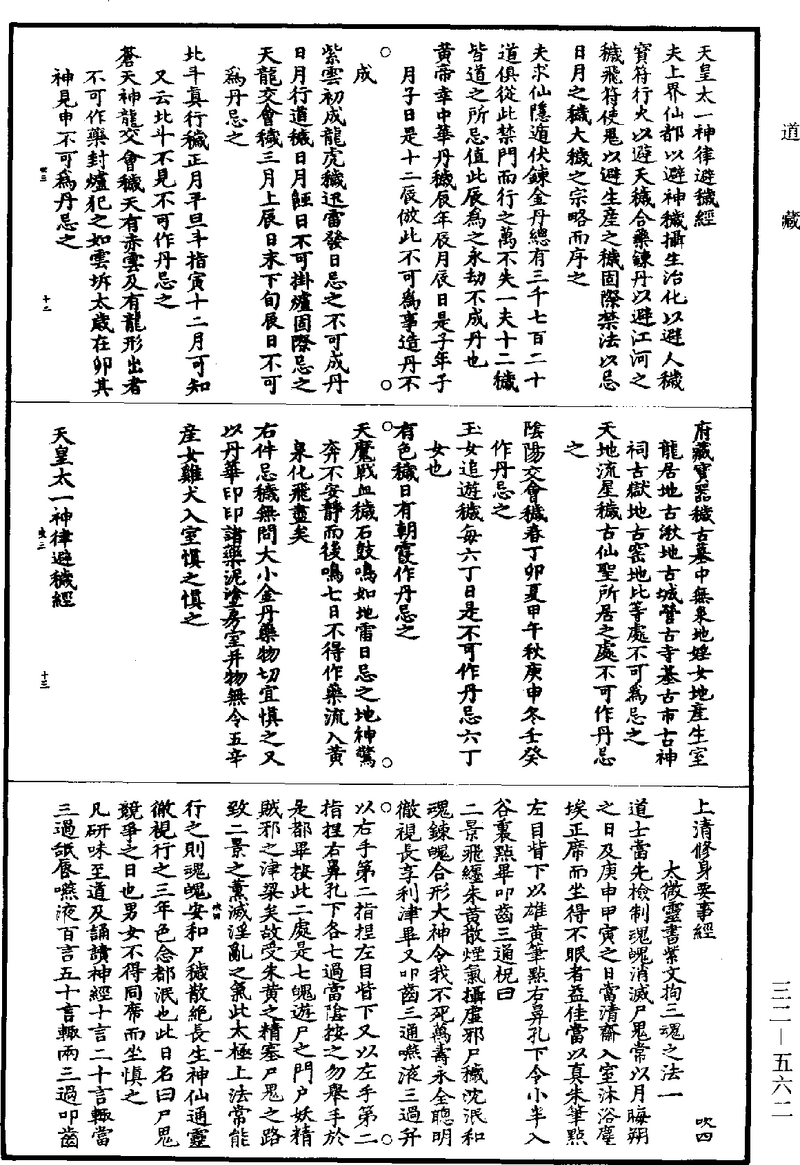 道藏
天皇太一神律避穢經
夫上界仙都以避神穢攝生治化以避人穢
寶符行火以避天穢合藥鍊丹以避江河之
穢飛符使鬼以避生産之穢固際禁法以忌
日月之穢大穢之宗略而序之
夫求仙隱遁伏鍊金丹總有三千七百二十
道俱從此禁門而行之萬不失一夫十二穢
皆道之所忌值此辰爲之永劫不成丹也
黃帝幸中華丹穢辰年辰月辰日是子年子
月子日是十二辰倣此不可爲事造丹不
成
紫雲初成龍虎穢迅雷發日忌之不可成丹
日月行道穢日月𨒪日不可掛爐固際忌之
天龍交會穢三月上辰日末下旬辰日不可
爲丹忌之
北斗真行穢正月平旦斗指寅十二月可知
又云北斗不見不可作丹忌之
蒼天神龍交會穢天有赤雲及有龍形出者
不可作藥封爐犯之如雲坼太歲在卯其
神見申不可爲丹忌之
吹三
十二
府藏寶器穢古墓中無㚖地婬女地産生室
龍居地古湫地古城營古寺基古市古神
祠古獄地古窑地比等處不可爲忌之
天地流星穢古仙聖所居之處不可作丹忌
之
陰陽交會穢春丁卯夏甲午秋庚申冬壬癸
作丹忌之
玉女追遊穢每六丁日是不可作丹忌六丁
女也
有色穢日有朝霞作丹忌之
天魔戰血穢石鼓鳴如地雷日忌之地神驚
奔不安静而後鳴七日不得作藥流入黃
泉化飛盡矣
右件忌穢無問大小金丹藥物切宜慎之又
以丹華印印諸藥泥塗房室并物無令五辛
産女雞犬入室慎之慎之
天皇太一神律避穢經
十三
上清修身要事經
吹四
太微靈書紫文拘三魂之法一
道士當先檢制魂魄消滅尸鬼常以月晦朔
之日及庚申甲寅之日當清齋入室沐浴塵
埃正席而坐得不眠者益佳當以真朱筆點
左目眥下以雄黃筆點右鼻孔下令小半入
谷裏點畢叩齒三通祝曰
二景飛纏朱黃散煙氣攝虛邪尸穢沈泯和
魂鍊魄合形大神令我不死萬壽永全聰明
徹視長享利津畢又叩齒三通嚥液三過并
以右手第二指捏左目眥下又以左手第二
指捏右鼻孔下各七過當陰按之勿舉手於
是都畢按此二處是七魄遊尸之門戶妖精
賊邪之津梁矣故受朱黃之精塞尸鬼之路
致二景之薰滅淫亂之氣此太極上法常能
吹四
一
行之則魂魄安和尸穢散絶長生神仙通靈
徹視行之三年色念都泯也此日名曰尸鬼
競爭之日也男女不得同席而坐慎之
凡研味至道及誦讀神經十言二十言輒當
三過舐唇嚥液百言五十言輒兩三過叩齒
三二—五六二